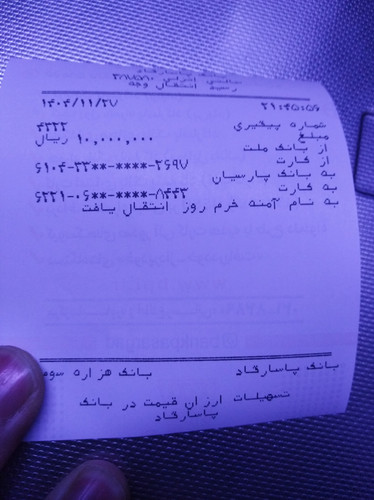 رسید انتقال وجه
۱۴۰۴/۱۱/۲۷ ۲۱:۴۵:۵۶
شماره پیگیری ۴۳۲۲
مبلغ ۱۰,۰۰۰,۰۰۰ ریال
از بانک ملت
از کارت ۶۱۰۴-۳۳**-****-۲۶۹۷
به بانک پارسیان
به کارت ۶۲۲۱-۰۶**-****-۸۴۴۳
به نام آمنه خرم روز انتقال یافت
بانک پاسارگاد بانک هزاره سوم
تسهیلات ارزان قیمت در بانک
پاسارگاد